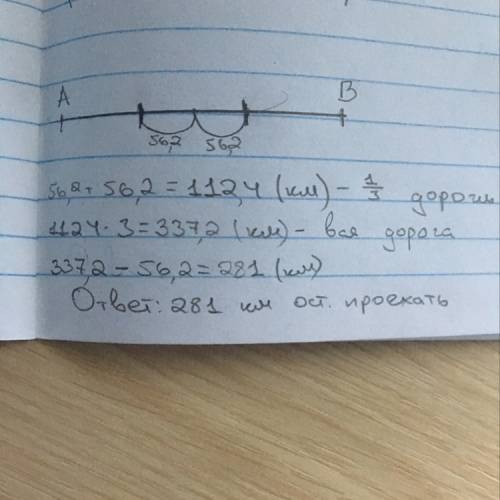 A B
56,2 56,2
56,2 + 56,2 = 112,4 (км) - 1/3 дороги
112,4 · 3 = 337,2 (км) - вся дорога
337,2 - 56,2 = 281 (км)
Ответ: 281 км ост. проехать